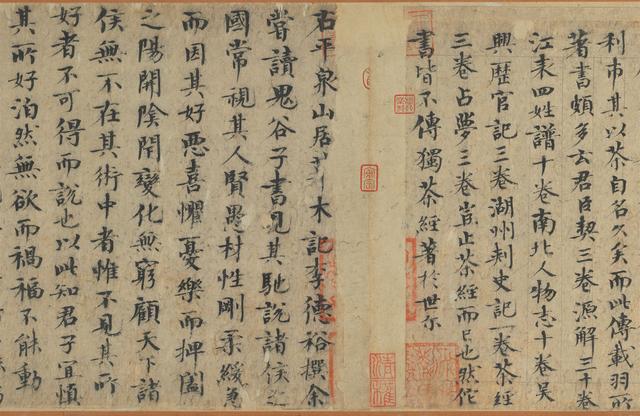 利市其以茶自名久矣而此傳載羽所
著書頗多云君臣契三卷源解三十卷
江表四姓譜十卷南北人物志十卷吳
興歷官記三卷湖州刺史記一卷茶經
三卷占夢三卷豈止茶經而已也然佗
書皆不傳獨茶經著於世尔
右平泉山居草木記李德裕撰余
嘗讀鬼谷子書見其馳說諸侯之
國常視其人賢愚材性剛柔緩急
而因其好惡喜懼憂樂而捭闔
之陽開陰閇變化無窮顧天下諸
侯無不在其術中者惟不見其所
好者不可得而說也以此知君子宜慎
其所好泊然無欲而禍福不能動